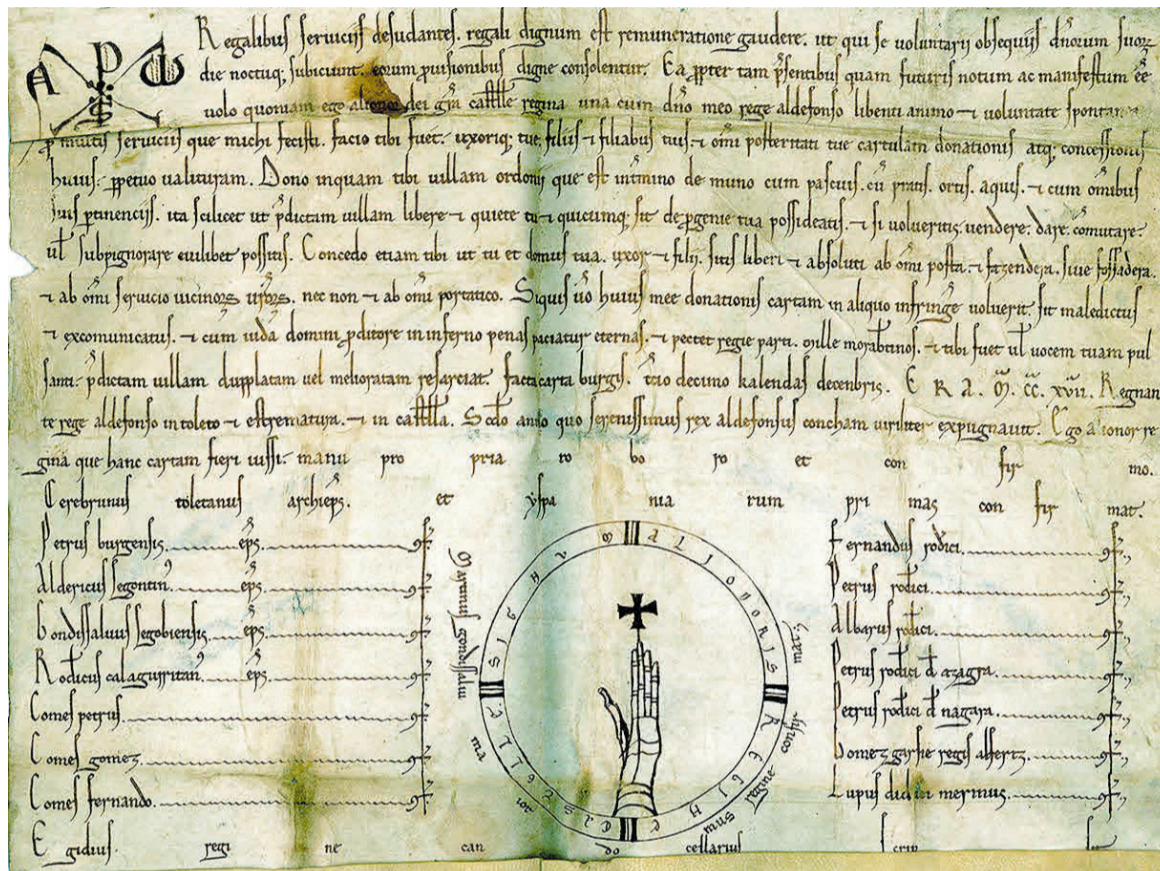 A P ω
Regalibus seruiciis desudantes. regali dignum est remuneratione gaudere. ut qui se uoluntarii obsequiis dn̄orum suoꝝ
die noctuq; subiciunt. eorum ꝓuisionibus digne consolentur. Ea ꝓpter tam p̄sentibus quam futuris notum ac manifestum ēē
uolo quoniam ego alionor dei gr̄a castelle regina una cum dn̄o meo rege aldefonso libenti animo ⁊ uoluntate spontanea
ꝓ multis seruiciis que michi fecisti. facio tibi fuet. uxoriq; tue. filiis ⁊ filiabus tuis. ⁊ om̄i posteritati tue cartulam donationis atq; concessionis
huius. ꝑpetuo ualituram. Dono inquam tibi uillam ordonii que est in t̄mino de muno cum pascuis. cū pratis. ortis. aquis. ⁊ cum om̄ibus
suis ꝑtinenciis. ita scilicet ut p̄dictam uillam libere ⁊ quiete tu ⁊ quicumq; sit de ꝓgenie tua possideatis. ⁊ si uolueritis. uendere. dare. comutare.
ul̄ subpignorare cuilibet possitis. Concedo etiam tibi ut tu et domus tua. uxor ⁊ filii. sitis liberi ⁊ absoluti ab om̄i posta. ⁊ fazendera. siue fossadera.
⁊ ab om̄i seruicio uicinoꝝ ur̄oꝝ. nec non ⁊ ab om̄i portatico. Siquis ūo huius mee donationis cartam in aliquo infrinḡe uoluerit. sit maledictus
⁊ excomunicatus. ⁊ cum iuda domini ꝓditore in inferno penas paciatur eternas. ⁊ pectet regie parti. mille morab̄tinos. ⁊ tibi fuet ul̄ uocem tuam pul
santi. p̄dictam uillam dupplatam uel melioratam resarciat. facta carta burgis. t̄cio decimo kalendas decenbris. E R A. M̄. CC̄. xvii. Regnan
te rege aldefonso in toleto ⁊ estrematura. ⁊ in castella. Scd̄o anno quo serenissimus rex aldefonsus concham uiriliter expugnauit. Ego alionor re
gina que hanc cartam fieri iussi. manu pro pria ro bo ro et con fir mo.
Cerebrunus toletanus archiep̄s. et yspa nia rum pri mas con fir mat.
Petrus burgensis ep̄s cf̄.
Aldericus segontin' ep̄s cf̄.
Gondissaluus segobiensis ep̄s cf̄.
Rod̄icus calagurritan' ep̄s cf̄.
Comes petrus cf̄.
Comes gomez cf̄.
Comes fernando cf̄.
SIGNVM ALIONORIS REGINE CASTELLE
Martinus gondissalui ma ior mus regine confir mat.
Fernandus rod̄ici. cf̄.
Petrus rod̄ici. cf̄.
Albarus rod̄ici. cf̄.
Petrus rod̄ici d̄ azagra. cf̄.
Petrus rod̄ici d̄ nagara. cf̄.
Gomez garsie regis alfertz. cf̄.
Lupus didaci merinus. cf̄.
Egidius. regi ne can do cellarius scrip